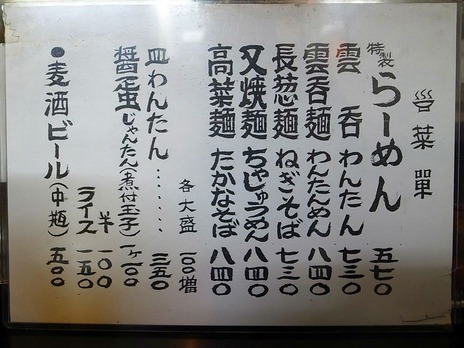 営菜單
特製らーめん 五七〇
雲呑 わんたん 七三〇
雲呑麺 わんたんめん 八四〇
長葱麺 ねぎそば 七三〇
叉焼麺 ちゃしゅうめん 八四〇
高菜麺 たかなそば 八四〇
各大盛 一〇〇増
皿わんたん…… 三五〇
醤蛋じゃんたん(煮付玉子) 一ヶ一〇〇
半 一〇〇
ライス 一五〇
●麦酒ビール(中瓶) 五〇〇